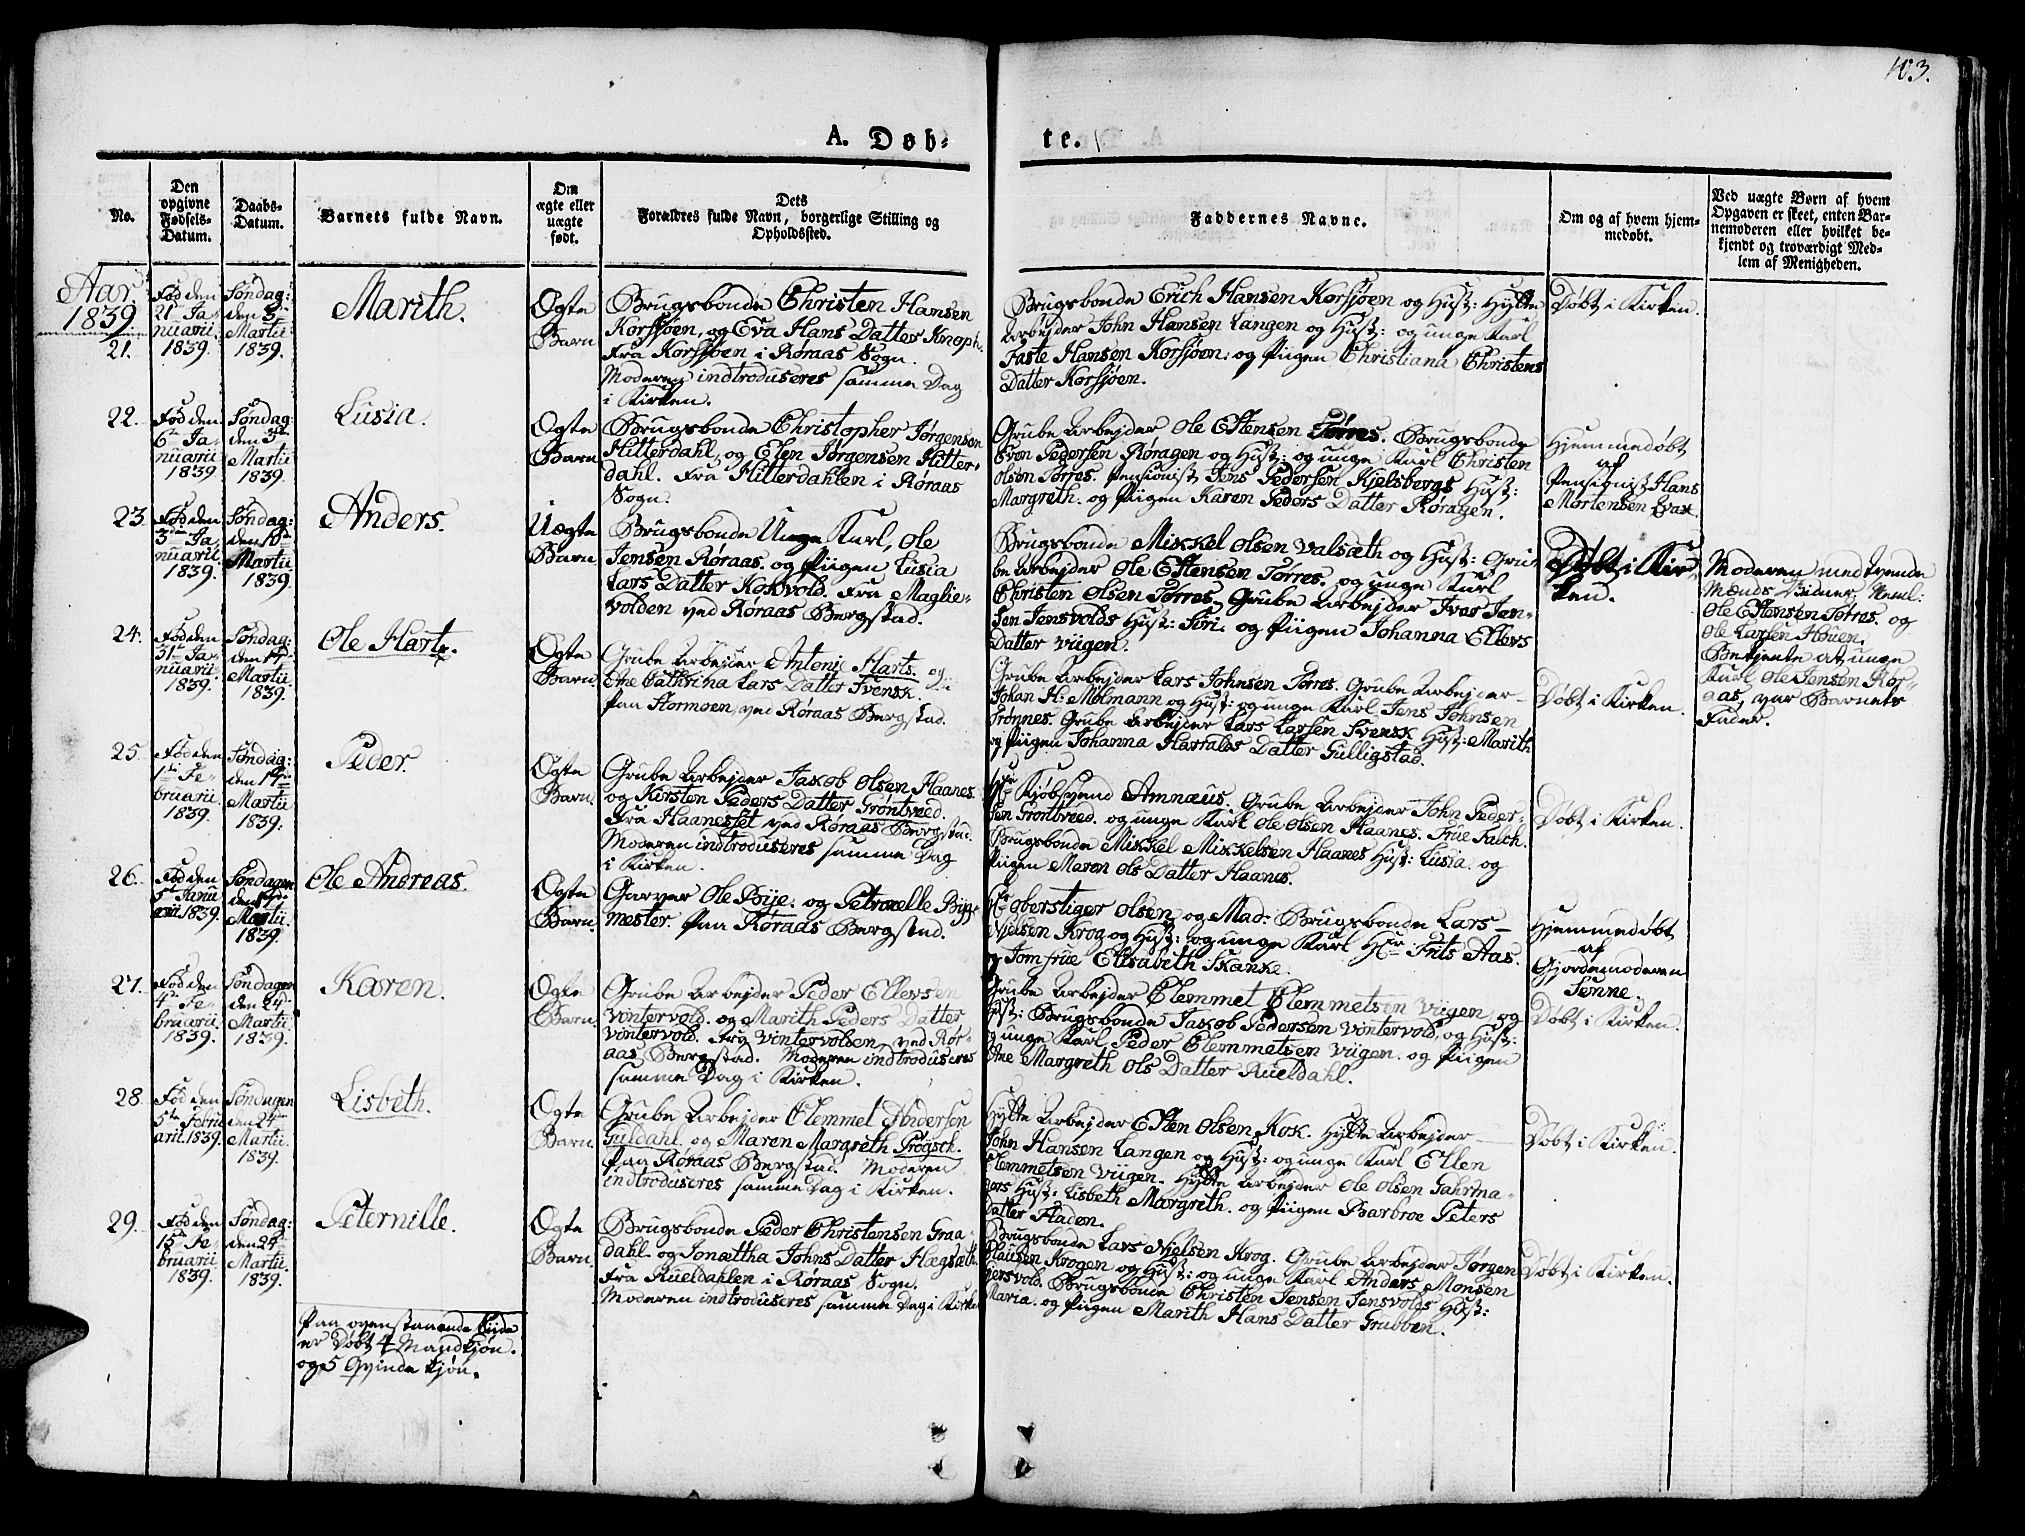 103.
A. Døb-
te.
No.
Den
opgivne
Fødsels-
Datum.
Daabs-
Datum.
Barnets fulde Navn.
Om
ægte eller
uægte
født.
Dets
Forældres fulde Navn, borgerlige Stilling og
Opholdssted.
Faddernes Navne.
Om og af hvem hjem-
medøbt.
Ved uægte Børn af hvem
Opgaven er skeet, enten Bar-
nemoderen eller hvilket be-
kjendt og troværdigt Med-
lem af Menigheden.
Aar
1839
21.
Fød den
21 Ja
nuarii
1839.
Søndag:
den 3
Martii
1839.
Marith.
Ægte
Barn
Brugsbonde Christen Hansen
Korssjøen, og Eva Hans Datter Knoph.
Fra Korssjøen i Røraas Sogn.
Moderen indtroduseres samme Dag
i Kirken.
Brugsbonde Erich Hansen Korsjøen og Hust: Hytte
Arbejder John Hansen Langen og Hust: og unge Karl
Faste Hansen Korsjøen; og Piigen Christiana Christens
Datter Korsjøen.
Døbt i Kirken.
22.
Fød den
6 Ja
nuarii
1839.
Søndag
den 3
Martii
1839.
Lusia.
Ægte
Barn
Brugsbonde Christopher Jørgensen
Hitterdahl, og Elen Jørgensen Hitter-
dahl. Fra Hitterdahlen i Røraas
Sogn.
Grube Arbejder Ole Estensen Tørres. Brugsbonde
Sven Pedersen Røragen og Hust: og unge Karl Christen
Olsen Tørres. Pensionist Jens Pedersen Kjelsbergs Hust:
Margreth. og Piigen Karen Peders Datter Røragen.
Hjemmedøbt
af
Pensionist Hans
Mortensen Evax
23.
Fød den
3 Ja
nuarii
1839.
Søndag:
den 10
Martii
1839.
Anders.
Uægte
Barn
Brugsbonde Unge Karl, Ole
Jensen Røraas. og Piigen Lusia
Lars Datter Kokvold. Fra Maglie-
volden ved Røraas Bergstad.
Brugsbonde Mikkel Olsen Valsæth og Hust: Gru-
be Arbejder Ole Estensen Tørres. og unge Karl
Christen Olsen Tørres. Grube Arbejder Ivar Jen-
sen Jensvolds Hust: Siri. og Piigen Johanna Ellevs
Datter Viigen.
Døbt i Kir-
ken.
Moderen med tvende
Mænds Vidner, Neml:
Ole Estensen Tørres. og
Ole Larsen Houen.
Bekjente at unge
Karl Ole Jensen Rør-
aas, var Barnets
Fader.
24.
Fød den
31 Ja
nuarii
1839.
Søndag:
den 17
Martii
1839.
Ole Harts.
Ægte
Barn.
Grube Arbejder Antoni Harts. og
Ane Cathrina Lars Datter Svensk.
Paa Stormoen, ved Røraas Bergstad.
Grube Arbejder Lars Johnsen Tørres. Grube Arbejder
Johan H: Molmann og Hust: og unge Karl Jens Johnsen
Trønnes. Grube Arbejder Lars Larsen Svensk Hust: Marith
og Piigen Johanna Harrals Datter Gulligstad.
Døbt i Kirken.
25.
Fød den
1 Fe-
bruarii
1839.
Søndag:
den 17
Martii
1839.
Peder.
Ægte
Barn.
Grube Arbejder Jakob Olsen Haanes.
og Kirsten Peders Datter Grøntveed.
Fra Haanesset ved Røraas Bergstad.
Moderen indtroduseres samme Dag
i Kirken.
Kjøbsvend Amnæus. Grube Arbejder John Peder-
sen Grøntveed. og unge Karl Ole Olsen Haanes. Frue Falch.
Brugsbonde Mikkel Mikkelsen Haanes Hust: Lusia. og
Piigen Maren Ols Datter Haanes.
Døbt i Kirken.
26.
Fød den
5 Janu
arii 1839.
Søndagen
den 17
Martii
1839.
Ole Andreas.
Ægte
Barn.
Garver Ole Bije. og Petronelle Bijg
mester. Paa Røraas Bergstad.
Oberstiger Olsen og Mad: Brugsbonde Lars
Nielsen Krog og Hust: og unge Karl Frits Aas.
og Jomfrue Elisabeth Skanke.
Hjemmedøbt
af
Gjordemoderen
Sønne.
27.
Fød den
4 Fe-
bruarii.
1839.
Søndagen
den 24
Martii
1839.
Karen.
Ægte
Barn.
Grube Arbejder Peder Ellevsen
Vintervold. og Marith Peders Datter
Vintervold. Fra Vintervolden, ved Rør-
aas Bergstad. Moderen indtroduseres
samme Dag i Kirken.
Grube Arbejder Clemmet Clemmetsen Viigen, og
Hust: Brugsbonde Jakob Pedersen Vintervold, og Hust:
og unge Karl Peder Clemmetsen Viigen. og Piigen
Ane Margreth Ols Datter Rueldahl.
Døbt i Kirken.
28.
Fød den
5 Febru
arii. 1839.
Søndagen
den 24
Martii.
1839.
Lisbeth.
Ægte
Barn.
Grube Arbejder Clemmet Andersen
Guldahl. og Maren Margreth Prøgsch.
Paa Røraas Bergstad. Moderen
indtroduseres samme Dag i Kirken.
Hytte Arbejder Esten Olsen Kok. Hytte Arbejder
John Hansen Langen og Hust: og unge Karl Ellen
Clemmetsen Viigen. Hytte Arbejder Ole Olsen Gahrma-
gers Hust: Lisbeth Margreth. og Piigen Barbroe Peters
Datter Haden.
Døbt i Kirken.
29.
Fød den
15 Fe-
bruarii
1839.
Søndag:
den 24
Martii.
1839.
Peternille.
Ægte
Barn.
Brugsbonde Peder Christensen Graa-
dahl. og Jonættha Johns Datter Hægsæth.
Fra Rueldahlen i Røraas Sogn.
Moderen indtroduseres samme Dag i Kirken
Brugsbonde Lars Nielsen Krog. Grube Arbejder Jørgen
Clausen Krogen og Hust: og unge Karl Anders Monsen
Jensvold. Brugsbonde Christen Jensen Jensvolds Hust:
Maria. og Piigen Marith Hans Datter Grubben.
Døbt i Kirken.
Paa ovenstaaende Siide
er Døbt 4 Mandkjøn.
og 5 Qvindekjøn.